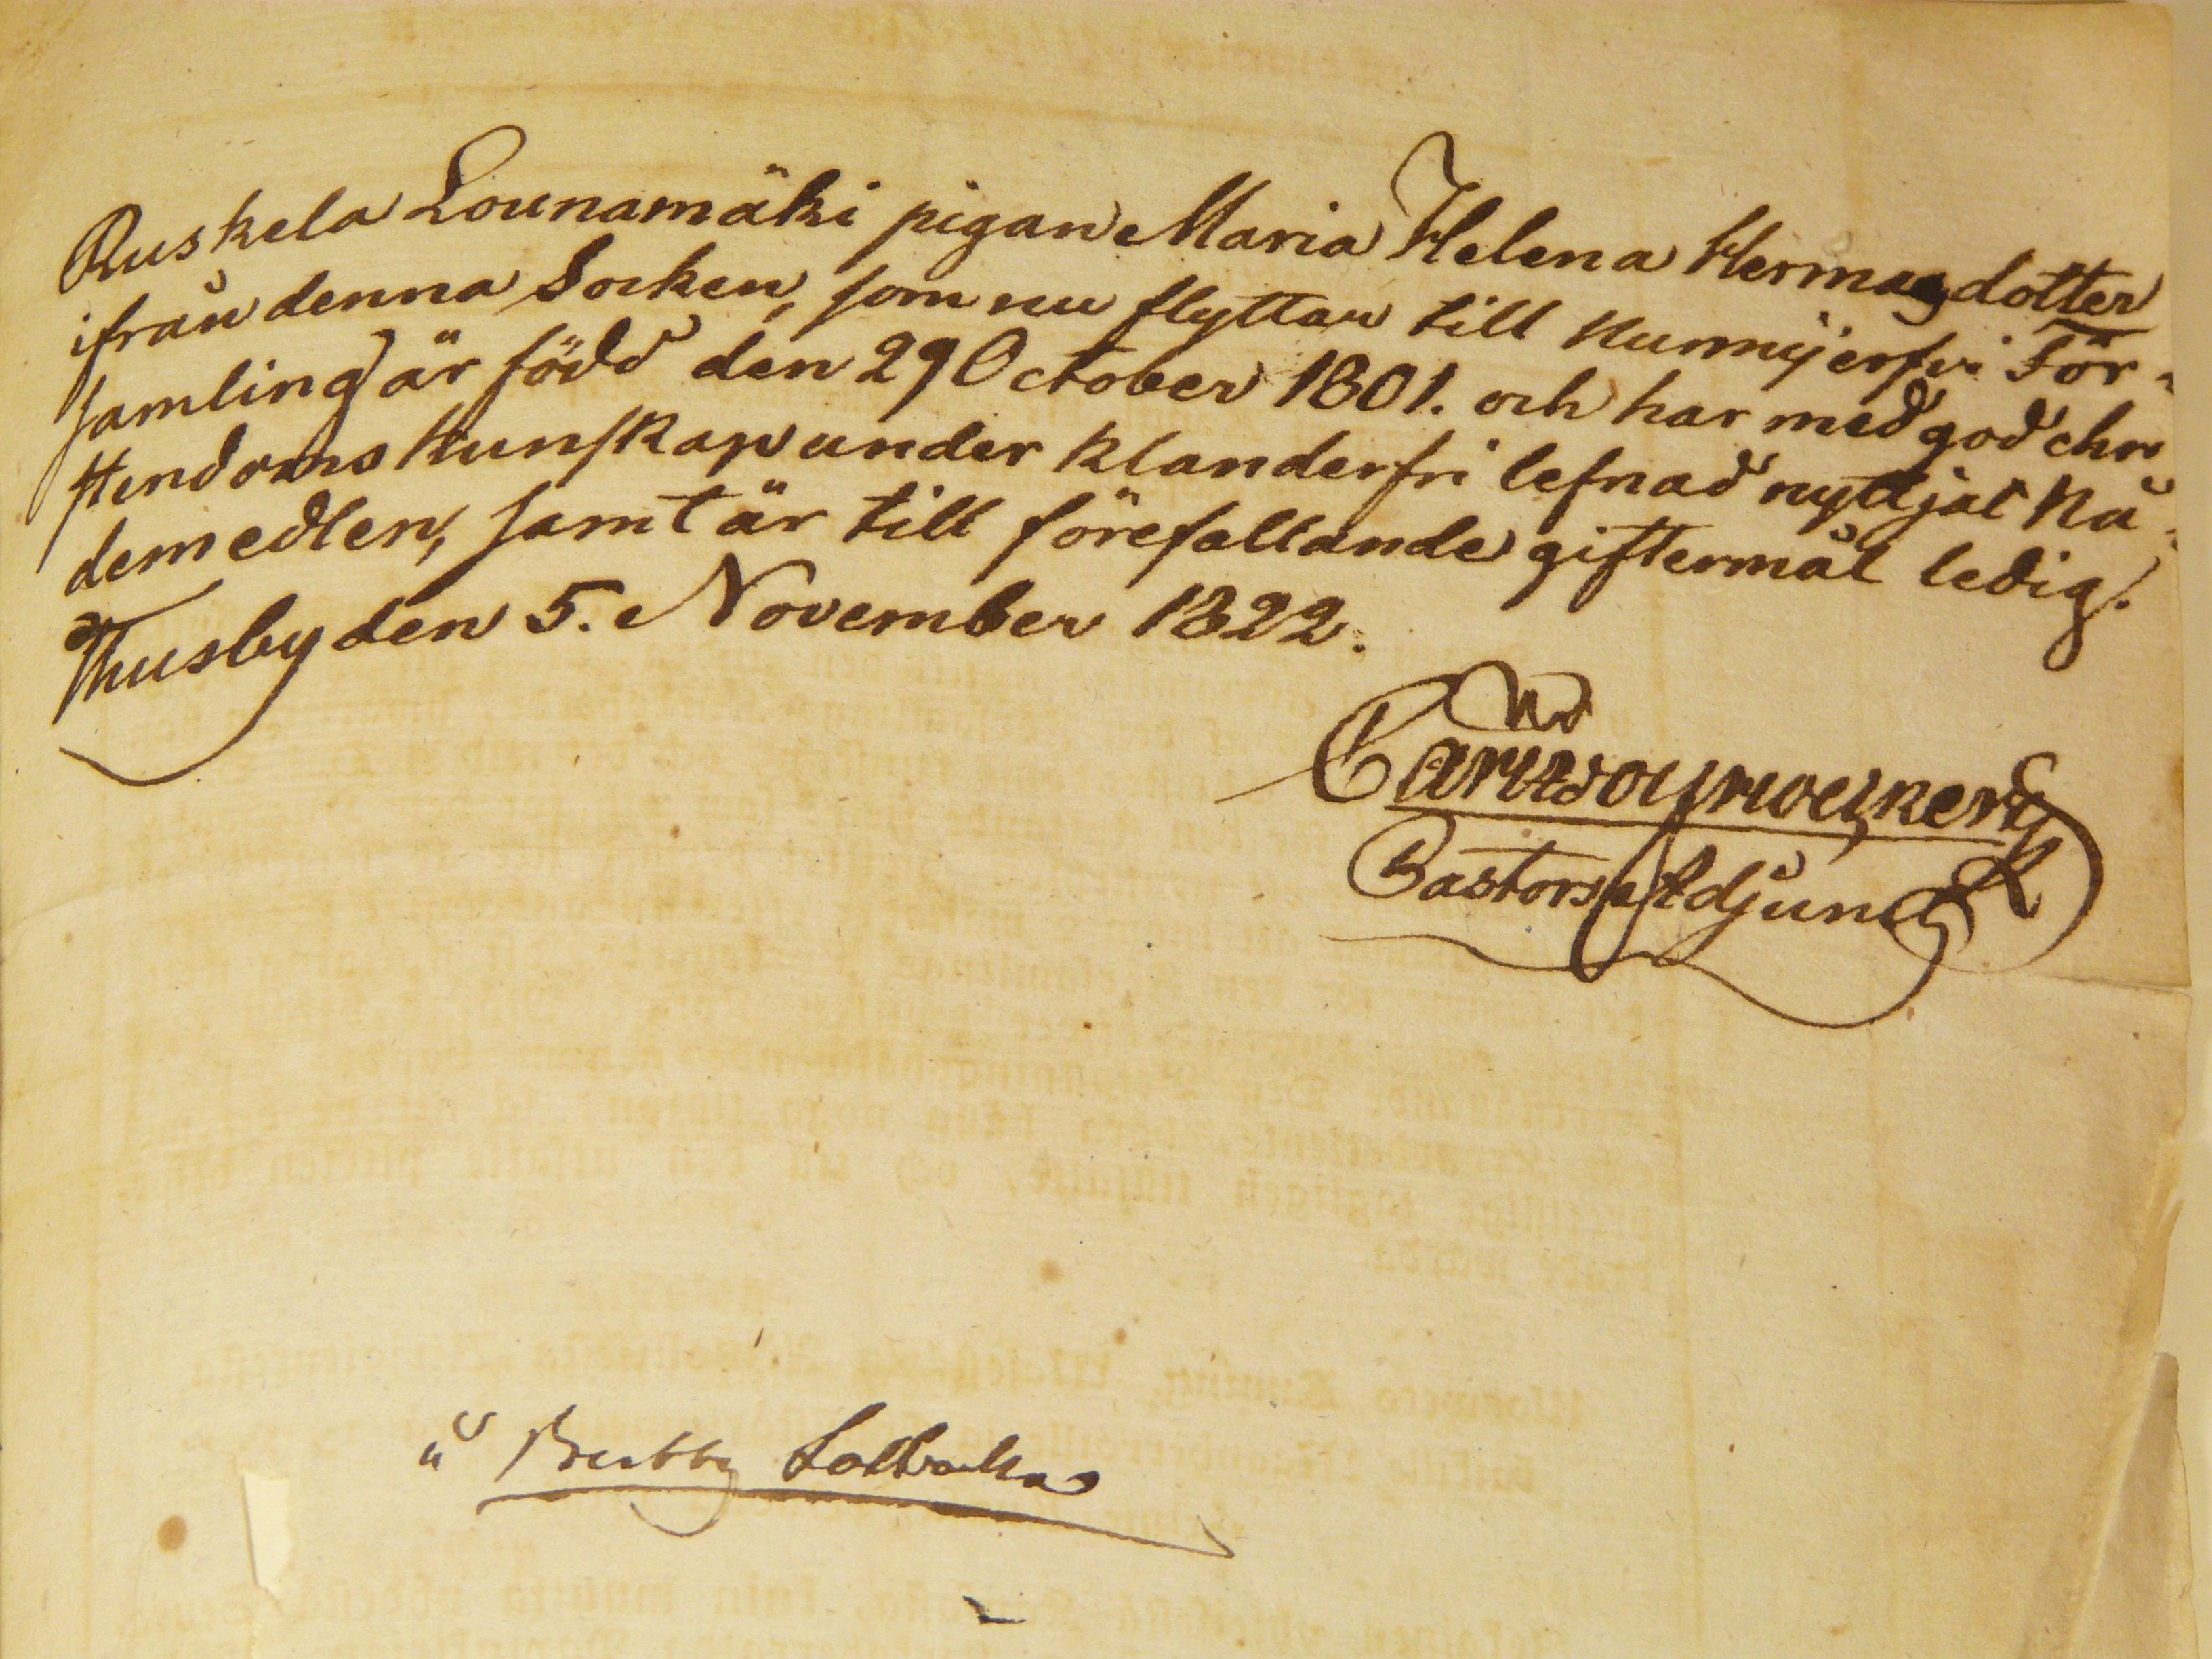 Ruskela Lounamäki pigan Maria Helena Hermansdotter
ifrån denna Socken, som nu flyttar till Nurmijerfvi För-
samling är född den 29 October 1801. och har med god chri
stendoms kunskap under klanderfri lefnad nyttjat Nå-
demedlen, samt är till förefallande giftermål ledig.
Thusby den 5. November 1822.
Carl
Pastors Adjunct
å